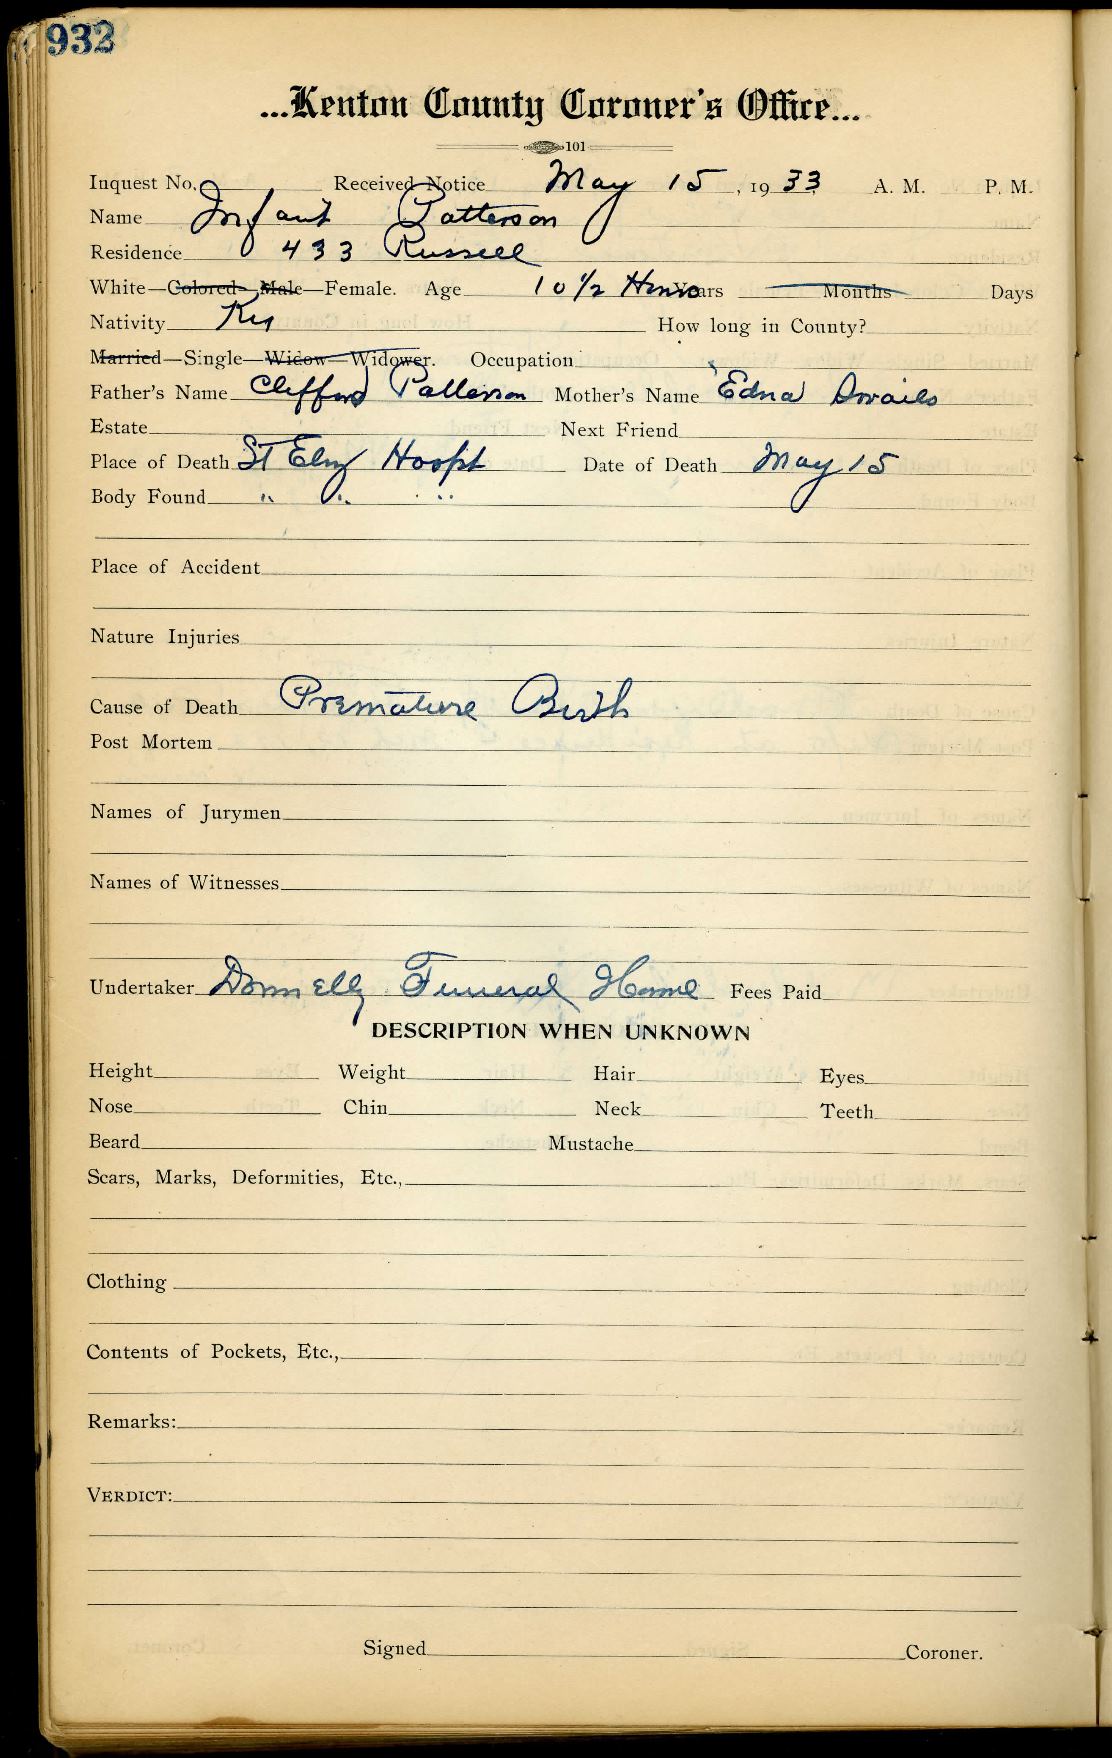 932
...Kenton County Coroner's Office...
101
Inquest No. Received Notice May 15, 1933 A. M. P. M.
Name Infant Patterson
Residence 433 Russell
White—Colored—Male—Female. Age 10 1/2 Years Months Days
Nativity Ky How long in County?
Married—Single—Widow—Widower. Occupation
Father's Name Clifford Patterson Mother's Name Edna
Estate Next Friend
Place of Death St Eliz Hospt Date of Death May 15
Body Found " " "
Place of Accident
Nature Injuries
Cause of Death Premature Birth
Post Mortem
Names of Jurymen
Names of Witnesses
Undertaker Donnelly Funeral Home Fees Paid
DESCRIPTION WHEN UNKNOWN
Height Weight Hair Eyes
Nose Chin Neck Teeth
Beard Mustache
Scars, Marks, Deformities, Etc.,
Clothing
Contents of Pockets, Etc.,
Remarks:
VERDICT:
Signed Coroner.